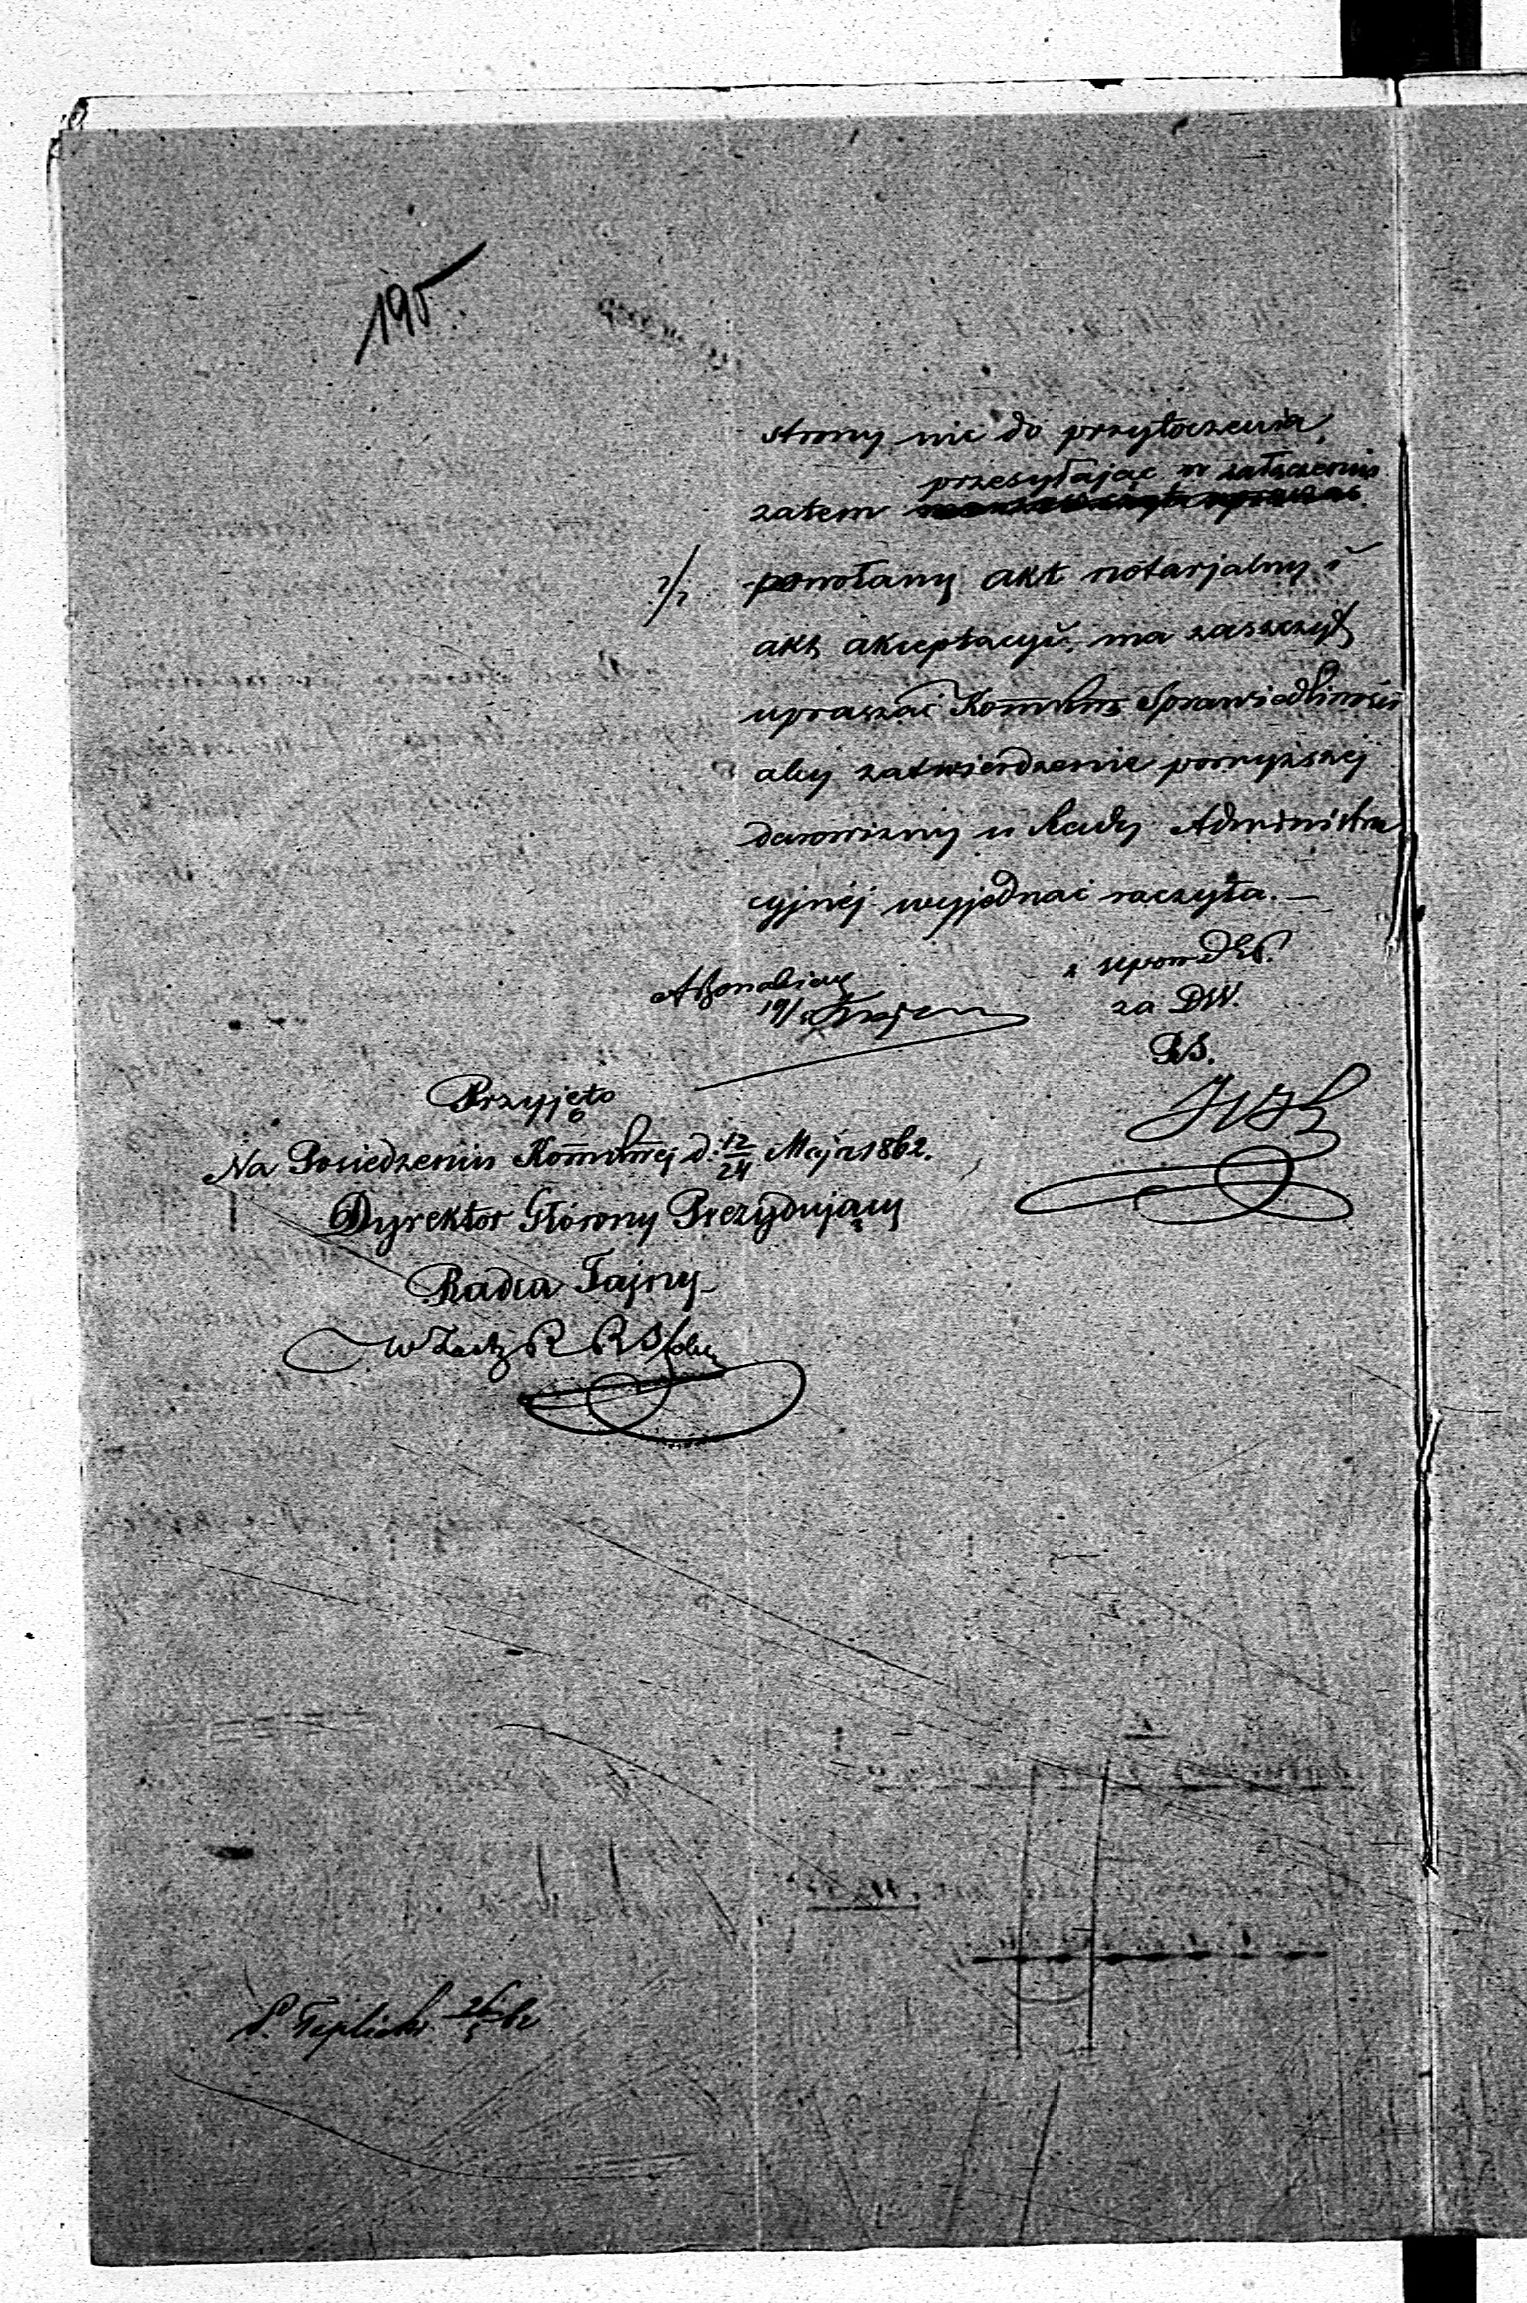 195
strony nic do przytoczenia,
przesyłając w załączeniu
zatem
powołany akt notarjalny i
akt akceptacyi, ma zaszczyt
upraszać Kommissÿ Sprawiedliwości
aby zatwierdzenie powyższej
darowizny u Rady Administra
cyjnéj wyjednać raczyła. —
za DW.
RS.
Przyjęto
Na Posiedzeniu Kommissÿnej d. 12/24 Maja 1862.
Dyrektor Główny Prezydujący
Radca Tajny
P. Teplicki